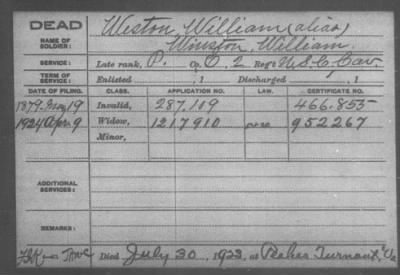 DEAD
NAME OF SOLDIER: Weston, William (alias)
Winston, William
SERVICE: Late rank, P. Co. C. 2 Reg't U.S.C. Cav
TERM OF SERVICE: Enlisted , 1 Discharged , 1
DATE OF FILING. CLASS. APPLICATION NO. LAW. CERTIFICATE NO.
1879. 19 Invalid, 287,109 466.855
1924 Apr. 9 Widow, 1217910 952267
Minor,
ADDITIONAL SERVICES:
REMARKS:
Died July 30, 1923, at Turnout, Va